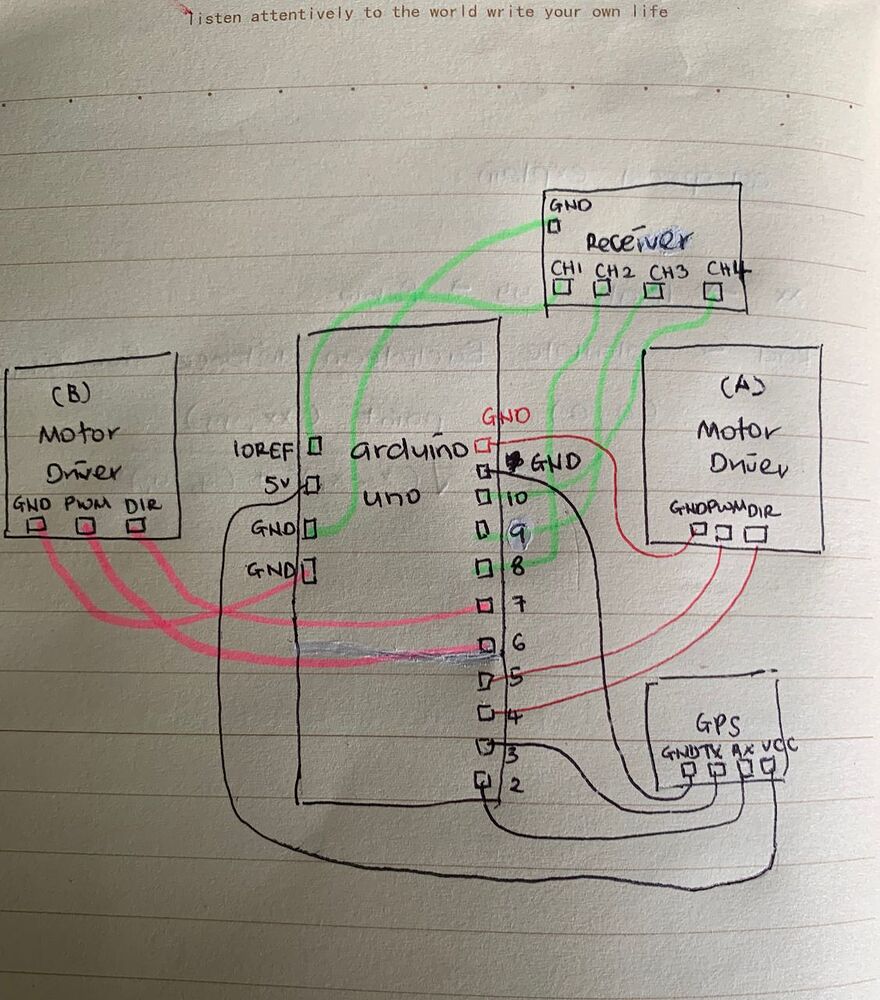 listen attentively to the world write your own life
GND
Receiver
CH1 CH2 CH3 CH4
(B)
Motor
Driver
GND PWM DIR
arduino
uno
IOREF
5v
GND
GND
GND
GND
10
9
8
7
6
5
4
3
2
(A)
Motor
Driver
GND PWM DIR
GPS
GND TX RX VCC